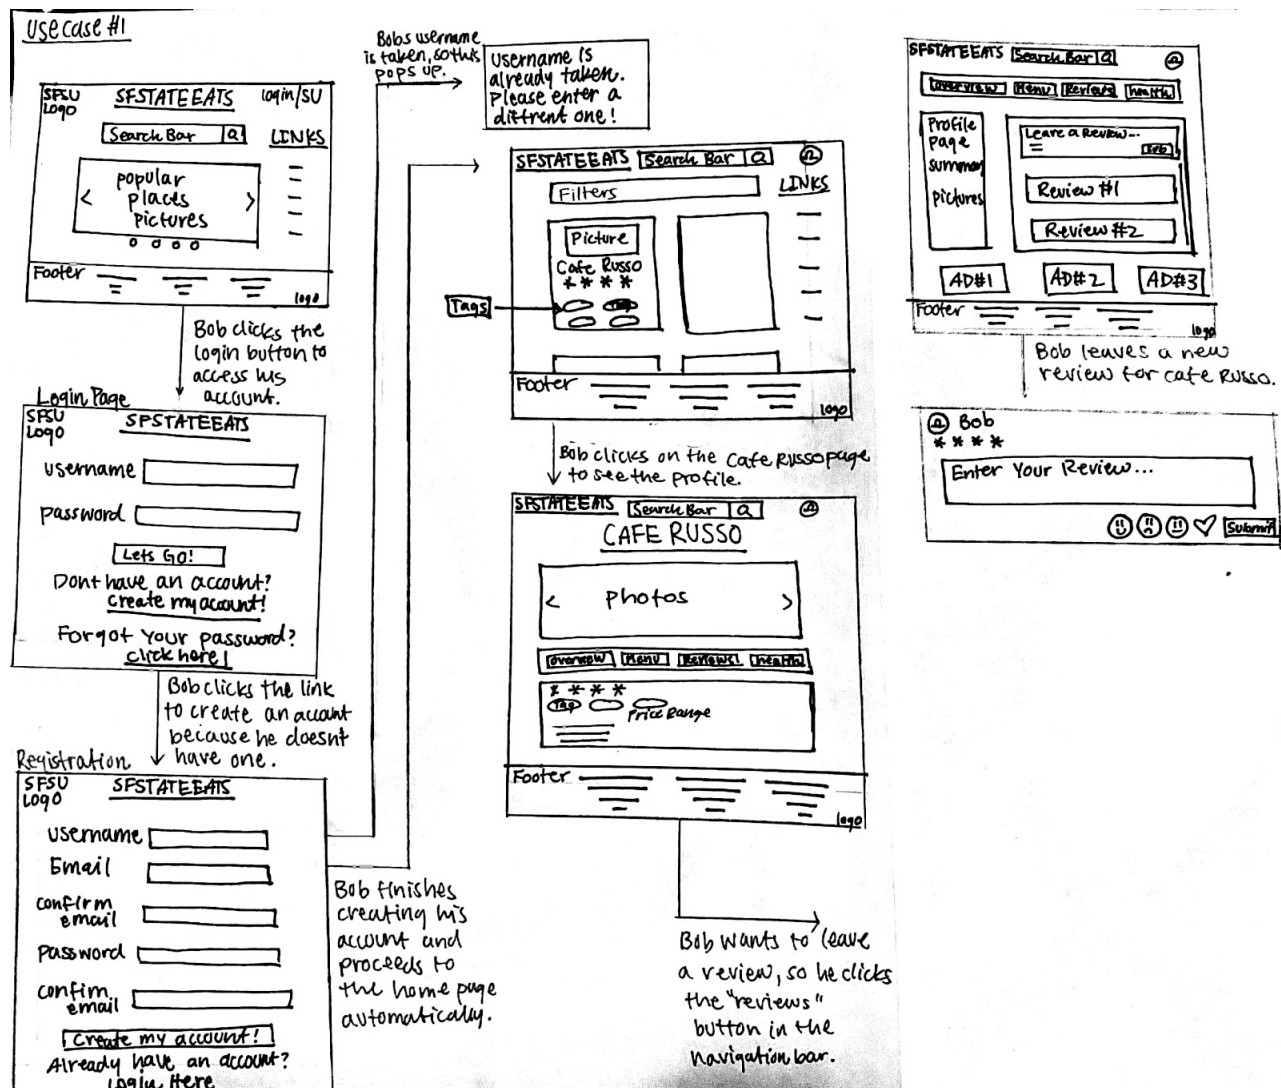 Use case #1
SFSU
Logo
SFSTATEEATS
login/SU
Search Bar
LINKS
popular
places
pictures
Footer
logo
Bob clicks the
login button to
access his
account.
Login Page
SFSU
Logo
SFSTATEEATS
username
password
Lets GO!
Dont have an account?
Create my account!
Forgot Your password?
click here!
Bob clicks the link
to create an account
because he doesnt
have one.
Registration
SFSU
Logo
SFSTATEEATS
username
Email
confirm
email
password
confim
email
Create my account!
Already have an account?
Login Here
Bobs username
is taken, so this
pops up.
Username is
already taken.
Please enter a
diffrent one!
Bob finishes
creating his
account and
proceeds to
the home page
automatically.
SFSTATEEATS
Search Bar
LINKS
Filters
Picture
Cafe Russo
* * * *
Tags
Tag
Footer
logo
Bob clicks on the Cafe Russo page
to see the profile.
SFSTATEEATS
Search Bar
CAFE RUSSO
< photos >
overview
Menu
Reviews!
health
* * * *
Tag
Price Range
Footer
logo
Bob wants to leave
a review, so he clicks
the "reviews"
button in the
navigation bar.
SFSTATEEATS
Search Bar
overview
Menu
Reviews
health
Profile
Page
summary
pictures
Leave a Review...
Sub
Review #1
Review #2
AD#1
AD#2
AD#3
Footer
logo
Bob leaves a new
review for cafe Russo.
Bob
* * * *
Enter Your Review...
Submit